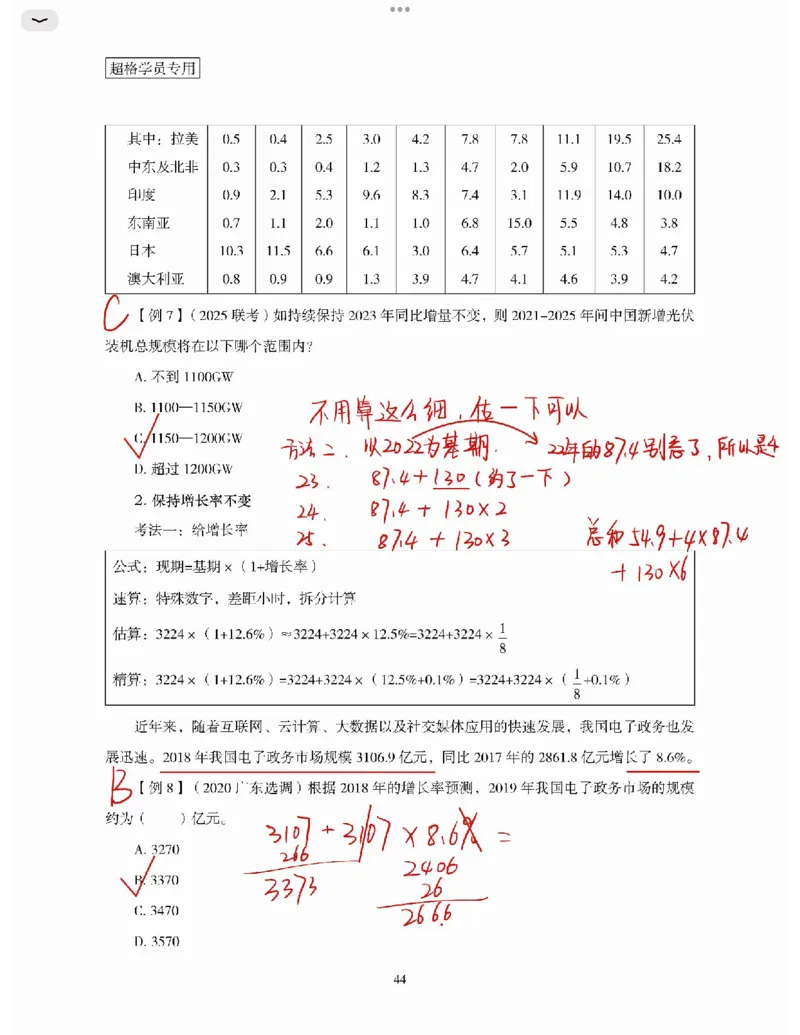 超格学员专用
其中：拉美 0.5 0.4 2.5 3.0 4.2 7.8 7.8 11.1 19.5 25.4
中东及北非 0.3 0.3 0.4 1.2 1.3 4.7 2.0 5.9 10.7 18.2
印度 0.9 2.1 5.3 9.6 8.3 7.4 3.1 11.9 14.0 10.0
东南亚 0.7 1.1 2.0 1.1 1.0 6.8 15.0 5.5 4.8 3.8
日本 10.3 11.5 6.6 6.1 3.0 6.4 5.7 5.1 5.3 4.7
澳大利亚 0.8 0.9 0.9 1.3 3.9 4.7 4.1 4.6 3.9 4.2
C【例 7】（2025 联考）如持续保持 2023 年同比增量不变，则 2021-2025 年间中国新增光伏
装机总规模将在以下哪个范围内？
A. 不到 1100GW
B. 1100—1150GW
不用算这么细，估一下可以
C. 1150—1200GW
方法二、以2022为基期. 22年的87.4别丢了，所以是4
D. 超过 1200GW
23. 87.4+130（约了一下）
2. 保持增长率不变
24. 87.4 + 130×2
考法一：给增长率
25. 87.4 + 130×3
总和 54.9+4×87.4
+ 130×6
公式：现期=基期×（1+增长率）
速算：特殊数字，差距小时，拆分计算
估算：3224×（1+12.6%）≈3224+3224×12.5%=3224+3224×1/8
精算：3224×（1+12.6%）=3224+3224×（12.5%+0.1%）=3224+3224×（1/8+0.1%）
近年来，随着互联网、云计算、大数据以及社交媒体应用的快速发展，我国电子政务也发
展迅速。2018 年我国电子政务市场规模 3106.9 亿元，同比 2017 年的 2861.8 亿元增长了 8.6%。
B【例 8】（2020 广东选调）根据 2018 年的增长率预测，2019 年我国电子政务市场的规模
约为（ ）亿元。
3107 + 3107 × 8.6% =
A. 3270
266
2406
B. 3370
3373
26
C. 3470
2666
D. 3570
44